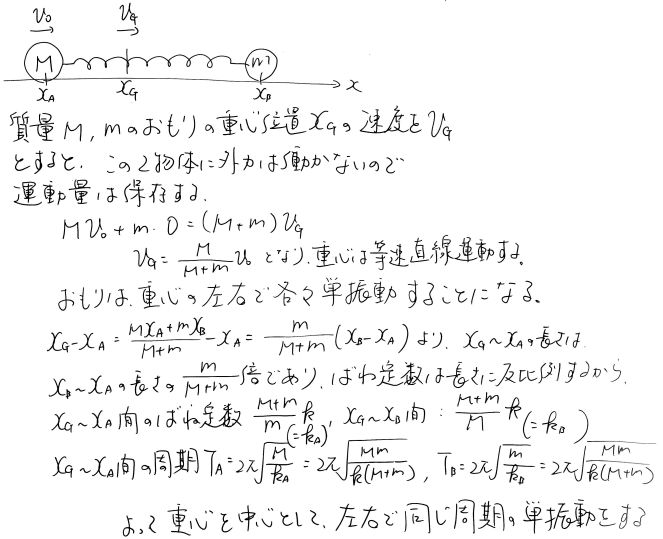 v₀ v_G
M m
x_A x_G x_B x
質量M, mのおもりの重心位置x_Gの速度をv_G
とすると、この2物体に外力は働かないので
運動量は保存する.
Mv₀+m・0=(M+m)v_G
v_G=M/(M+m) v₀ となり、重心は等速直線運動する。
おもりは、重心の左右で各々単振動することになる。
x_G-x_A=(Mx_A+mx_B)/(M+m)-x_A=m/(M+m)(x_B-x_A)より、x_G~x_Aの長さは
x_B~x_Aの長さのm/(M+m)倍であり、ばね定数は長さに反比例するから、
x_G~x_A間のばね定数 (M+m)/m k (=k_A), x_G~x_B間:(M+m)/M k (=k_B)
x_G~x_A間の周期T_A=2π√(M/k_A)=2π√(Mm/(k(M+m))), T_B=2π√(m/k_B)=2π√(Mm/(k(M+m)))
よって重心を中心として、左右で同じ周期の単振動をする